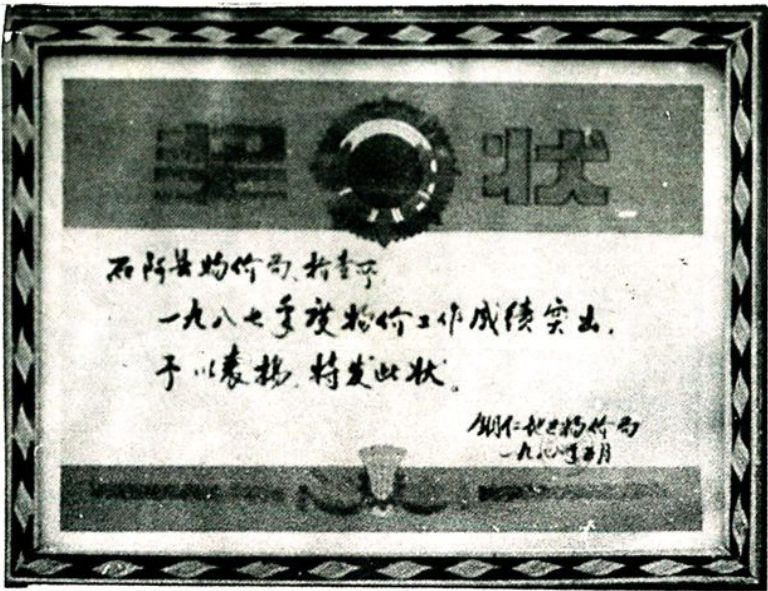 奖状
石阡县物价局、检查所
一九八七年度物价工作成绩突出，
予以表扬，特发此状。
铜仁地区物价局
一九八八年月